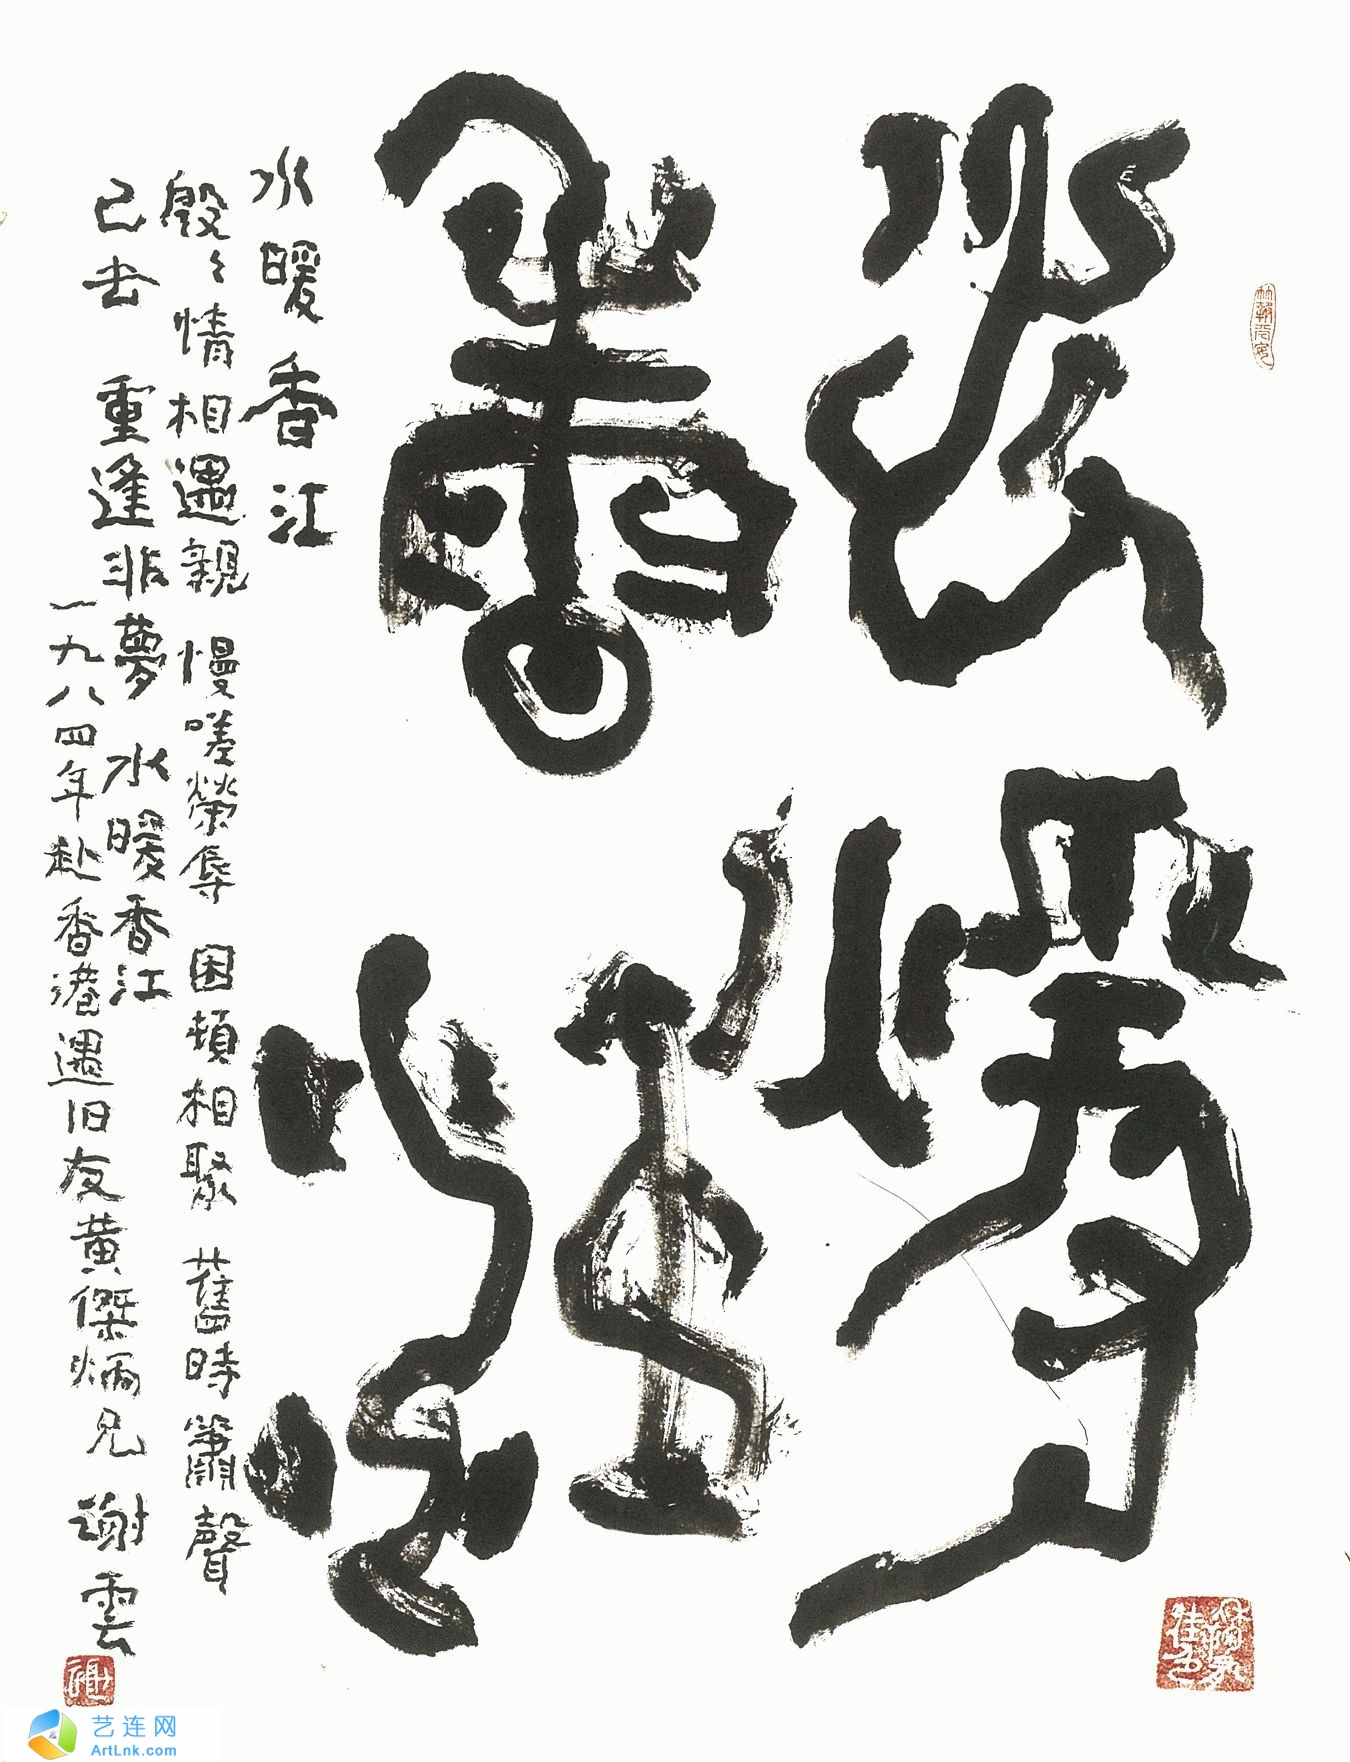 水煖
香江
水暖香江
殷殷情相遇親 慢嗟榮辱 困頓相聚 舊時簫聲
已去 重逢非夢 水暖香江
一九八四年赴香港遇旧友黄傑炳兄 謝雲
艺连网
ArtLnk.com